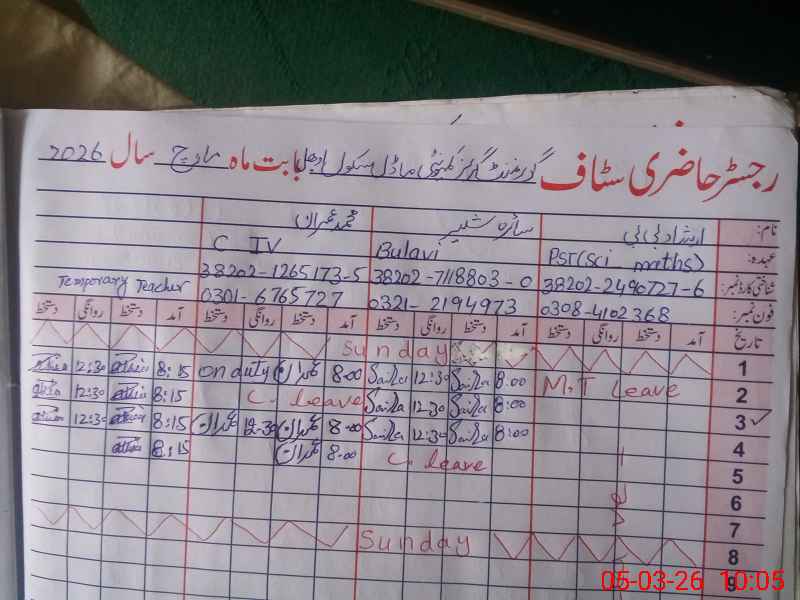 رجسٹر حاضری سٹاف گورنمنٹ گرلز کمیونٹی ماڈل سکول بابت ماہ مارچ سال 2026
نام: ارشاد بی بی سائرہ شبیر محمد عمران
عہدہ: PST(Sci maths) Bulavi C IV
شناختی کارڈ نمبر: 38202-2490727-6 38202-7118803-0 38202-1265173-5 Temporary Teacher
فون نمبر: 0308-4102368 0321-2194973 0301-6765727
تاریخ آمد دستخط روانگی دستخط آمد دستخط روانگی دستخط آمد دستخط روانگی دستخط آمد دستخط روانگی دستخط
1 Sunday
2 M.T Leave 8:00 Saila 12:30 Saila 8:00 عمران on duty 8:15 12:30
3 8:00 Saila 12:30 Saila C. leave 8:15
4 8:00 Saila 12:30 Saila 8:00 عمران 12:30 عمران 8:15 12:30
5 C. leave 8:00 عمران 8:15
6
7
8 Sunday
9
05-03-26 10:05